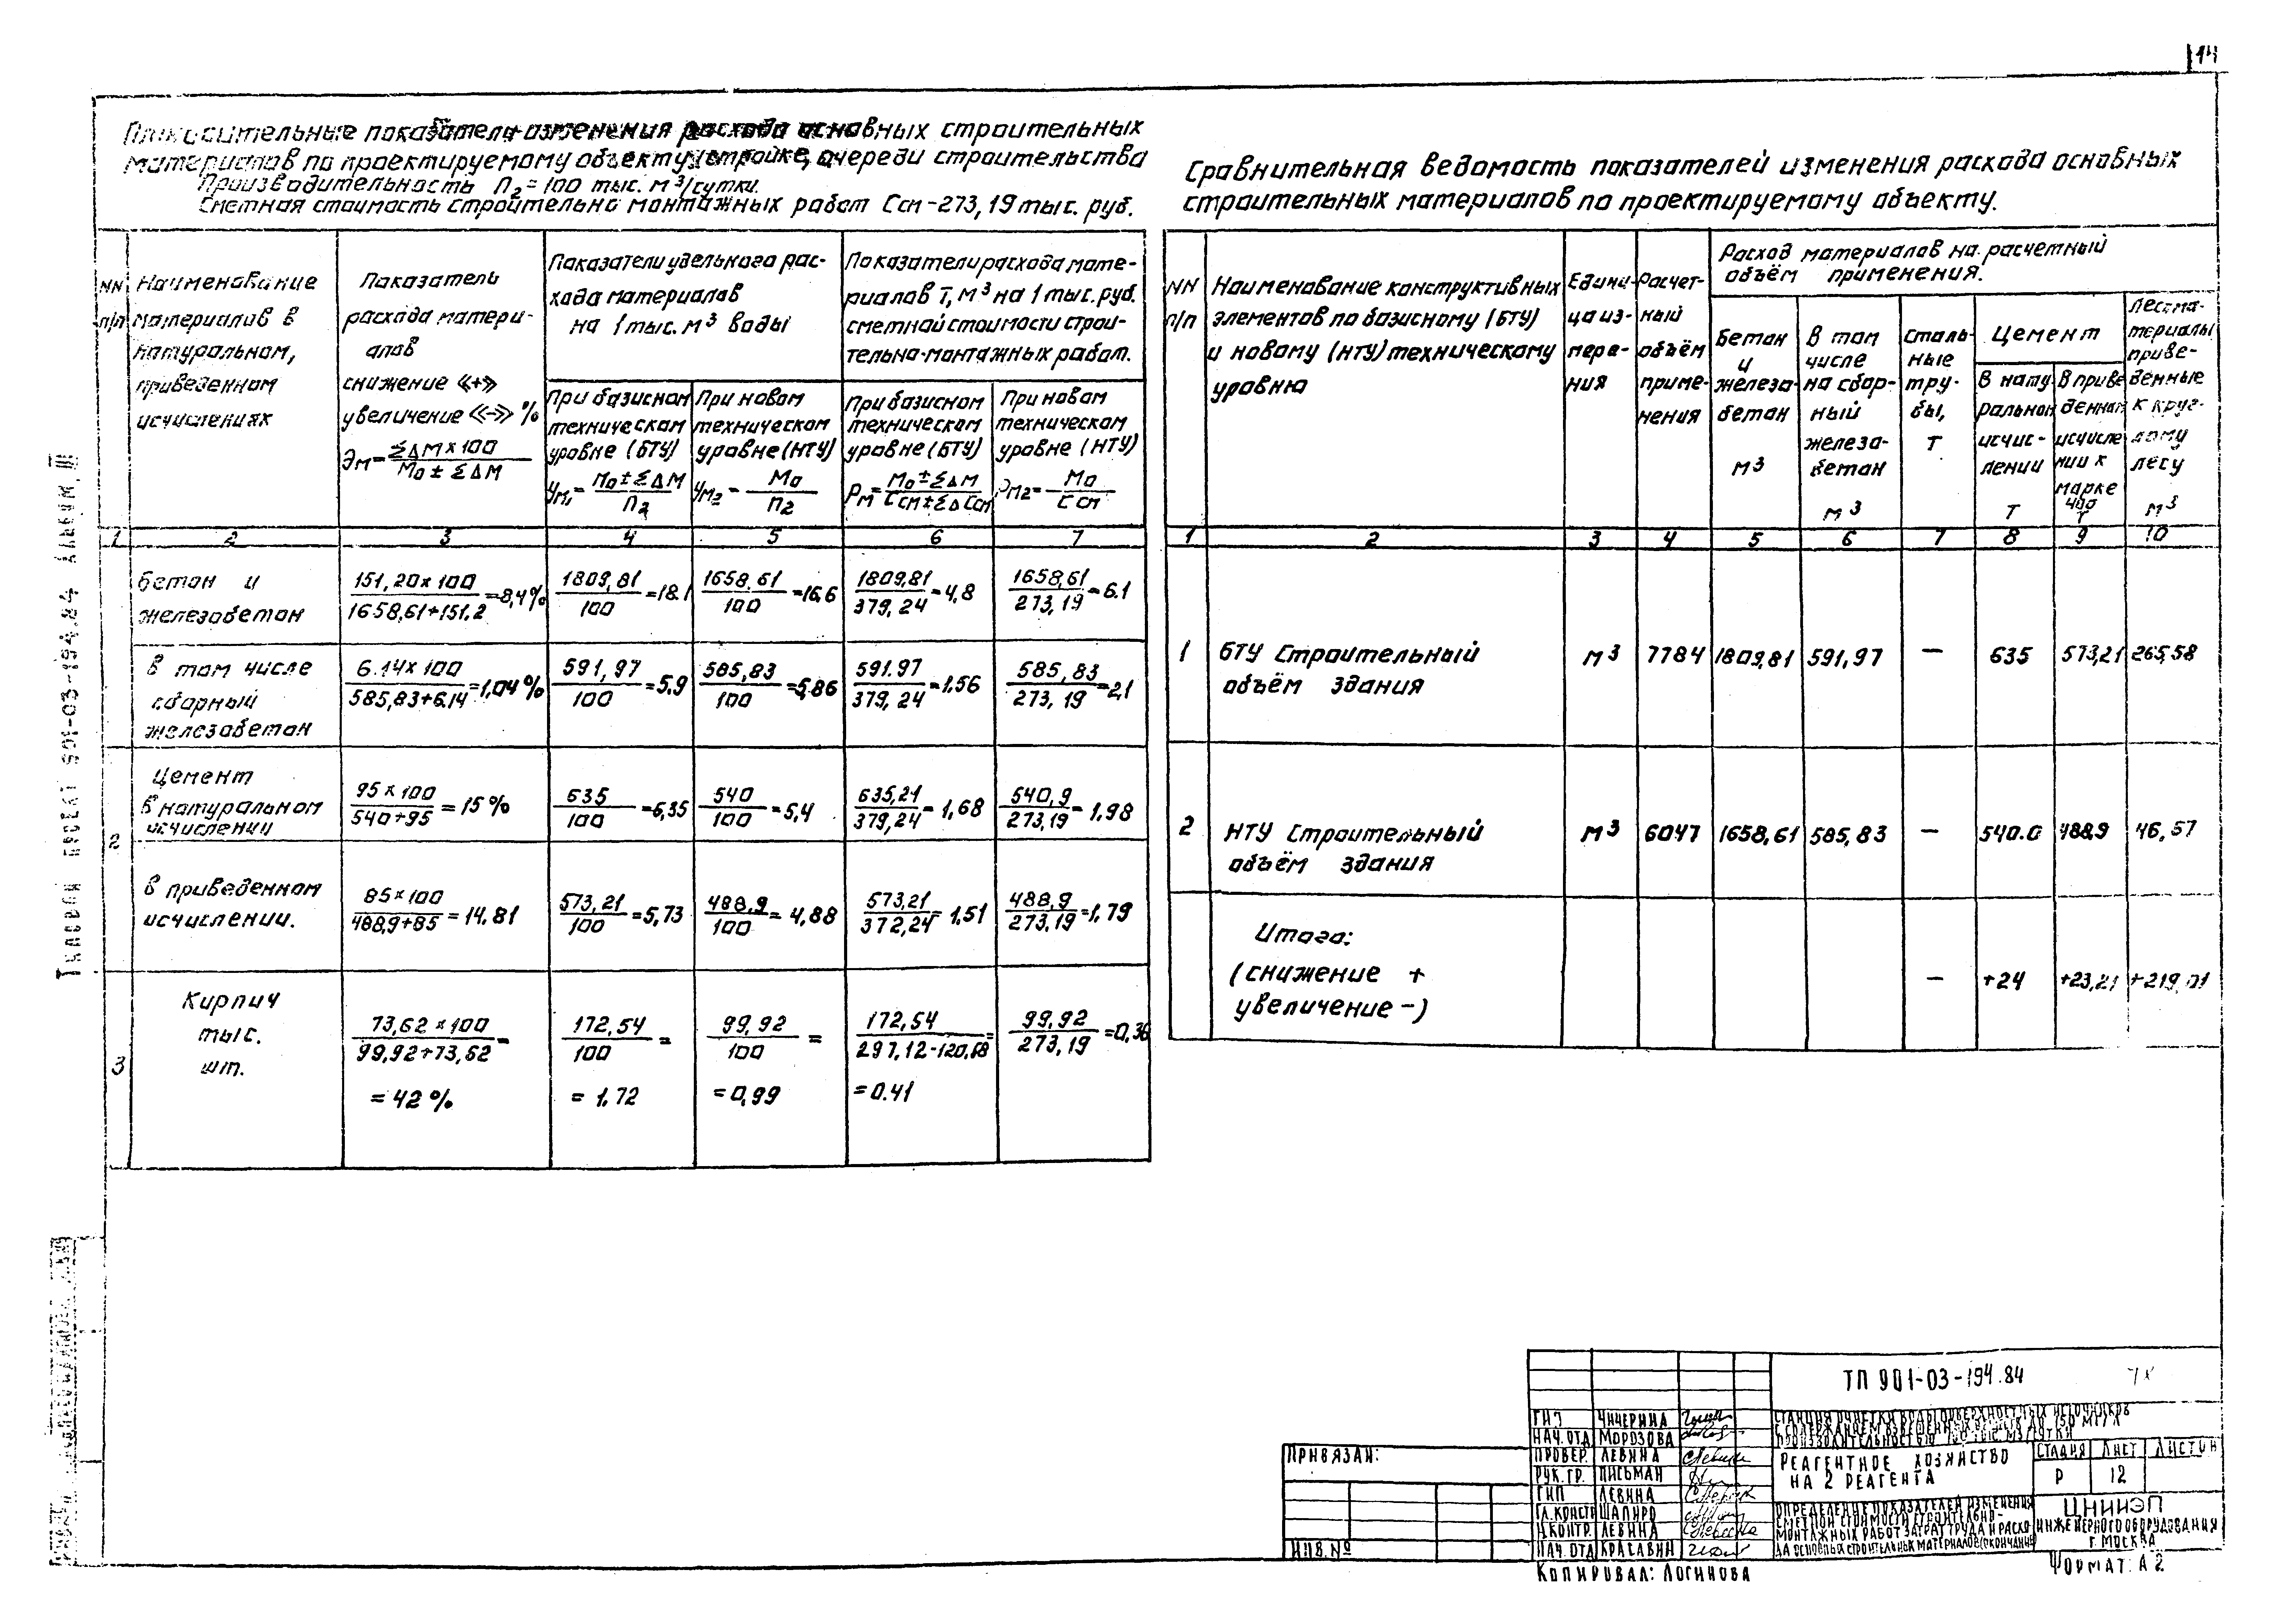 14
показатели изменения расхода основных строительных
материалов по проектируемому объекту, стройке, очереди строительства
Производительность П2=100 тыс. м3/сутки.
Сметная стоимость строительно монтажных работ Ссм-273,19 тыс. руб.
NN п/п
Наименование материалов в натуральном, приведенном исчислениях
Показатель расхода матери-
алов
снижение «+»
увеличение «-» %
Эм=ΣΔМ×100/Мо±ΣΔМ
Показатели удельного рас-
хода материалов
на 1 тыс. м3 воды
При базисном техническом уровне (БТУ)
Ум1=Мо±ΣΔМ/П2
При новом техническом уровне (НТУ)
Ум2=Мо/П2
Показатели расхода мате-
риалов Т, м3 на 1 тыс. руб.
сметной стоимости строи-
тельно-монтажных работ.
При базисном техническом уровне (БТУ)
Рм=Мо±ΣΔМ/Ссм±ΣΔСсм
При новом техническом уровне (НТУ)
Рм2=Мо/Ссм
1 2 3 4 5 6 7
бетон и железобетон
151,20×100/1658,61+151,2=8,4%
1809,81/100=18.1
1658,61/100=16,6
1809,81/379,24=4,8
1658,61/273,19=6.1
в том числе сборный железобетон
6.14×100/585,83+6.14=1,04%
591,97/100=5,9
585,83/100=5,86
591.97/379,24=1,56
585,83/273,19=2,1
2
Цемент в натуральном исчислении
95×100/540+95=15%
635/100=6,35
540/100=5,4
635,21/379,24=1,68
540,9/273,19=1,98
в приведенном исчислении.
85×100/488,9+85=14,81
573,21/100=5,73
488,9/100=4,88
573,21/372,24=1,51
488,9/273,19=1,79
3
Кирпич тыс. шт.
73,62×100/99,92+73,62=
=42%
172,54/100=
=1,72
99,92/100=
=0,99
172,54/297,12-120,68=
=0.41
99,92/273,19=0,36
Сравнительная ведомость показателей изменения расхода основных
строительных материалов по проектируемому объекту.
NN п/п
Наименование конструктивных
элементов по базисному (БТУ)
и новому (НТУ) техническому
уровню
Едини-
ца из-
мере-
ния
Расчет-
ный
объём
приме-
нения
Расход материалов на расчетный
объём применения.
Бетон и железо бетон м3
В том числе на сбор-
ный железо-
бетон м3
Сталь-
ные тру-
бы, Т
Цемент
В нату ральном исчис-
лении Т
В приве денном исчисле нии к марке 400 Т
Лесома-
териалы приве-
денные к круг-
лому лесу м3
1 2 3 4 5 6 7 8 9 10
1 БТУ Строительный объём здания м3 7784 1809,81 591,97 — 635 573,21 265,58
2 НТУ Строительный объём здания м3 6047 1658,61 585,83 — 540.0 488,9 46,57
Итого:
(снижение +
увеличение -)
— +24 +23,21 +219,01
Типовой проект 901-03-194.84 Альбом III
ТП 901-03-194.84
ГИП Чичерина
Нач. отд Морозова
Провер. Левина
Рук. гр. Письман
ГИП Левина
Гл. констр Шапиро
Н.контр. Левина
Нач. отд Красавин
Станция очистки воды поверхностных источников
с содержанием взвешенных веществ до 150 мг/л
производительностью 100 тыс. м3/сутки
Реагентное хозяйство
на 2 реагента
Стадия Лист Листов
Р 12
Определение показателей изменения
сметной стоимости строительно-
монтажных работ затрат труда и расхо
да основных строительных материалов (окончание)
ЦНИИЭП
инженерного оборудования
г. Москва
Привязан:
Инв. №
Копировал: Логинова
Формат: А2